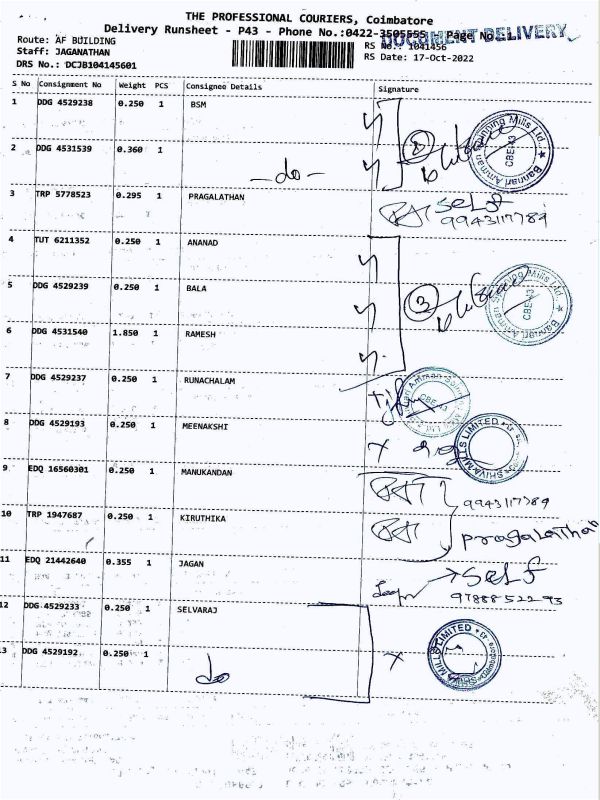 THE PROFESSIONAL COURIERS, Coimbatore
Delivery Runsheet - P43 - Phone No.:0422-3505555 - Page No
DOCUMENT DELIVERY
Route: AF BUILDING
RS No.: 1041456
Staff: JAGANATHAN
RS Date: 17-Oct-2022
DRS No.: DCJB104145601
S No Consignment No Weight PCS Consignee Details Signature
1 DDG 4529238 0.250 1 BSM
2 DDG 4531539 0.360 1 -do-
3 TRP 5778523 0.295 1 PRAGALATHAN Self
9943117789
4 TUT 6211352 0.250 1 ANANAD
5 DDG 4529239 0.250 1 BALA
3
6 DDG 4531540 1.850 1 RAMESH
7 DDG 4529237 0.250 1 RUNACHALAM
8 DDG 4529193 0.250 1 MEENAKSHI
SHIVA MILLS LIMITED
9 EDQ 16560301 0.250 1 MANUKANDAN
9943117789
10 TRP 1947687 0.250 1 KIRUTHIKA
Pragalathan
11 EDQ 21442640 0.355 1 JAGAN Self
9788852293
12 DDG 4529233 0.250 1 SELVARAJ
13 DDG 4529192 0.250 1 do
SHIVA MILLS LIMITED
Bannari Amman Spinning Mills Ltd.
CBE-43
Bannari Amman Spinning Mills Ltd.
CBE-43
CBE-43